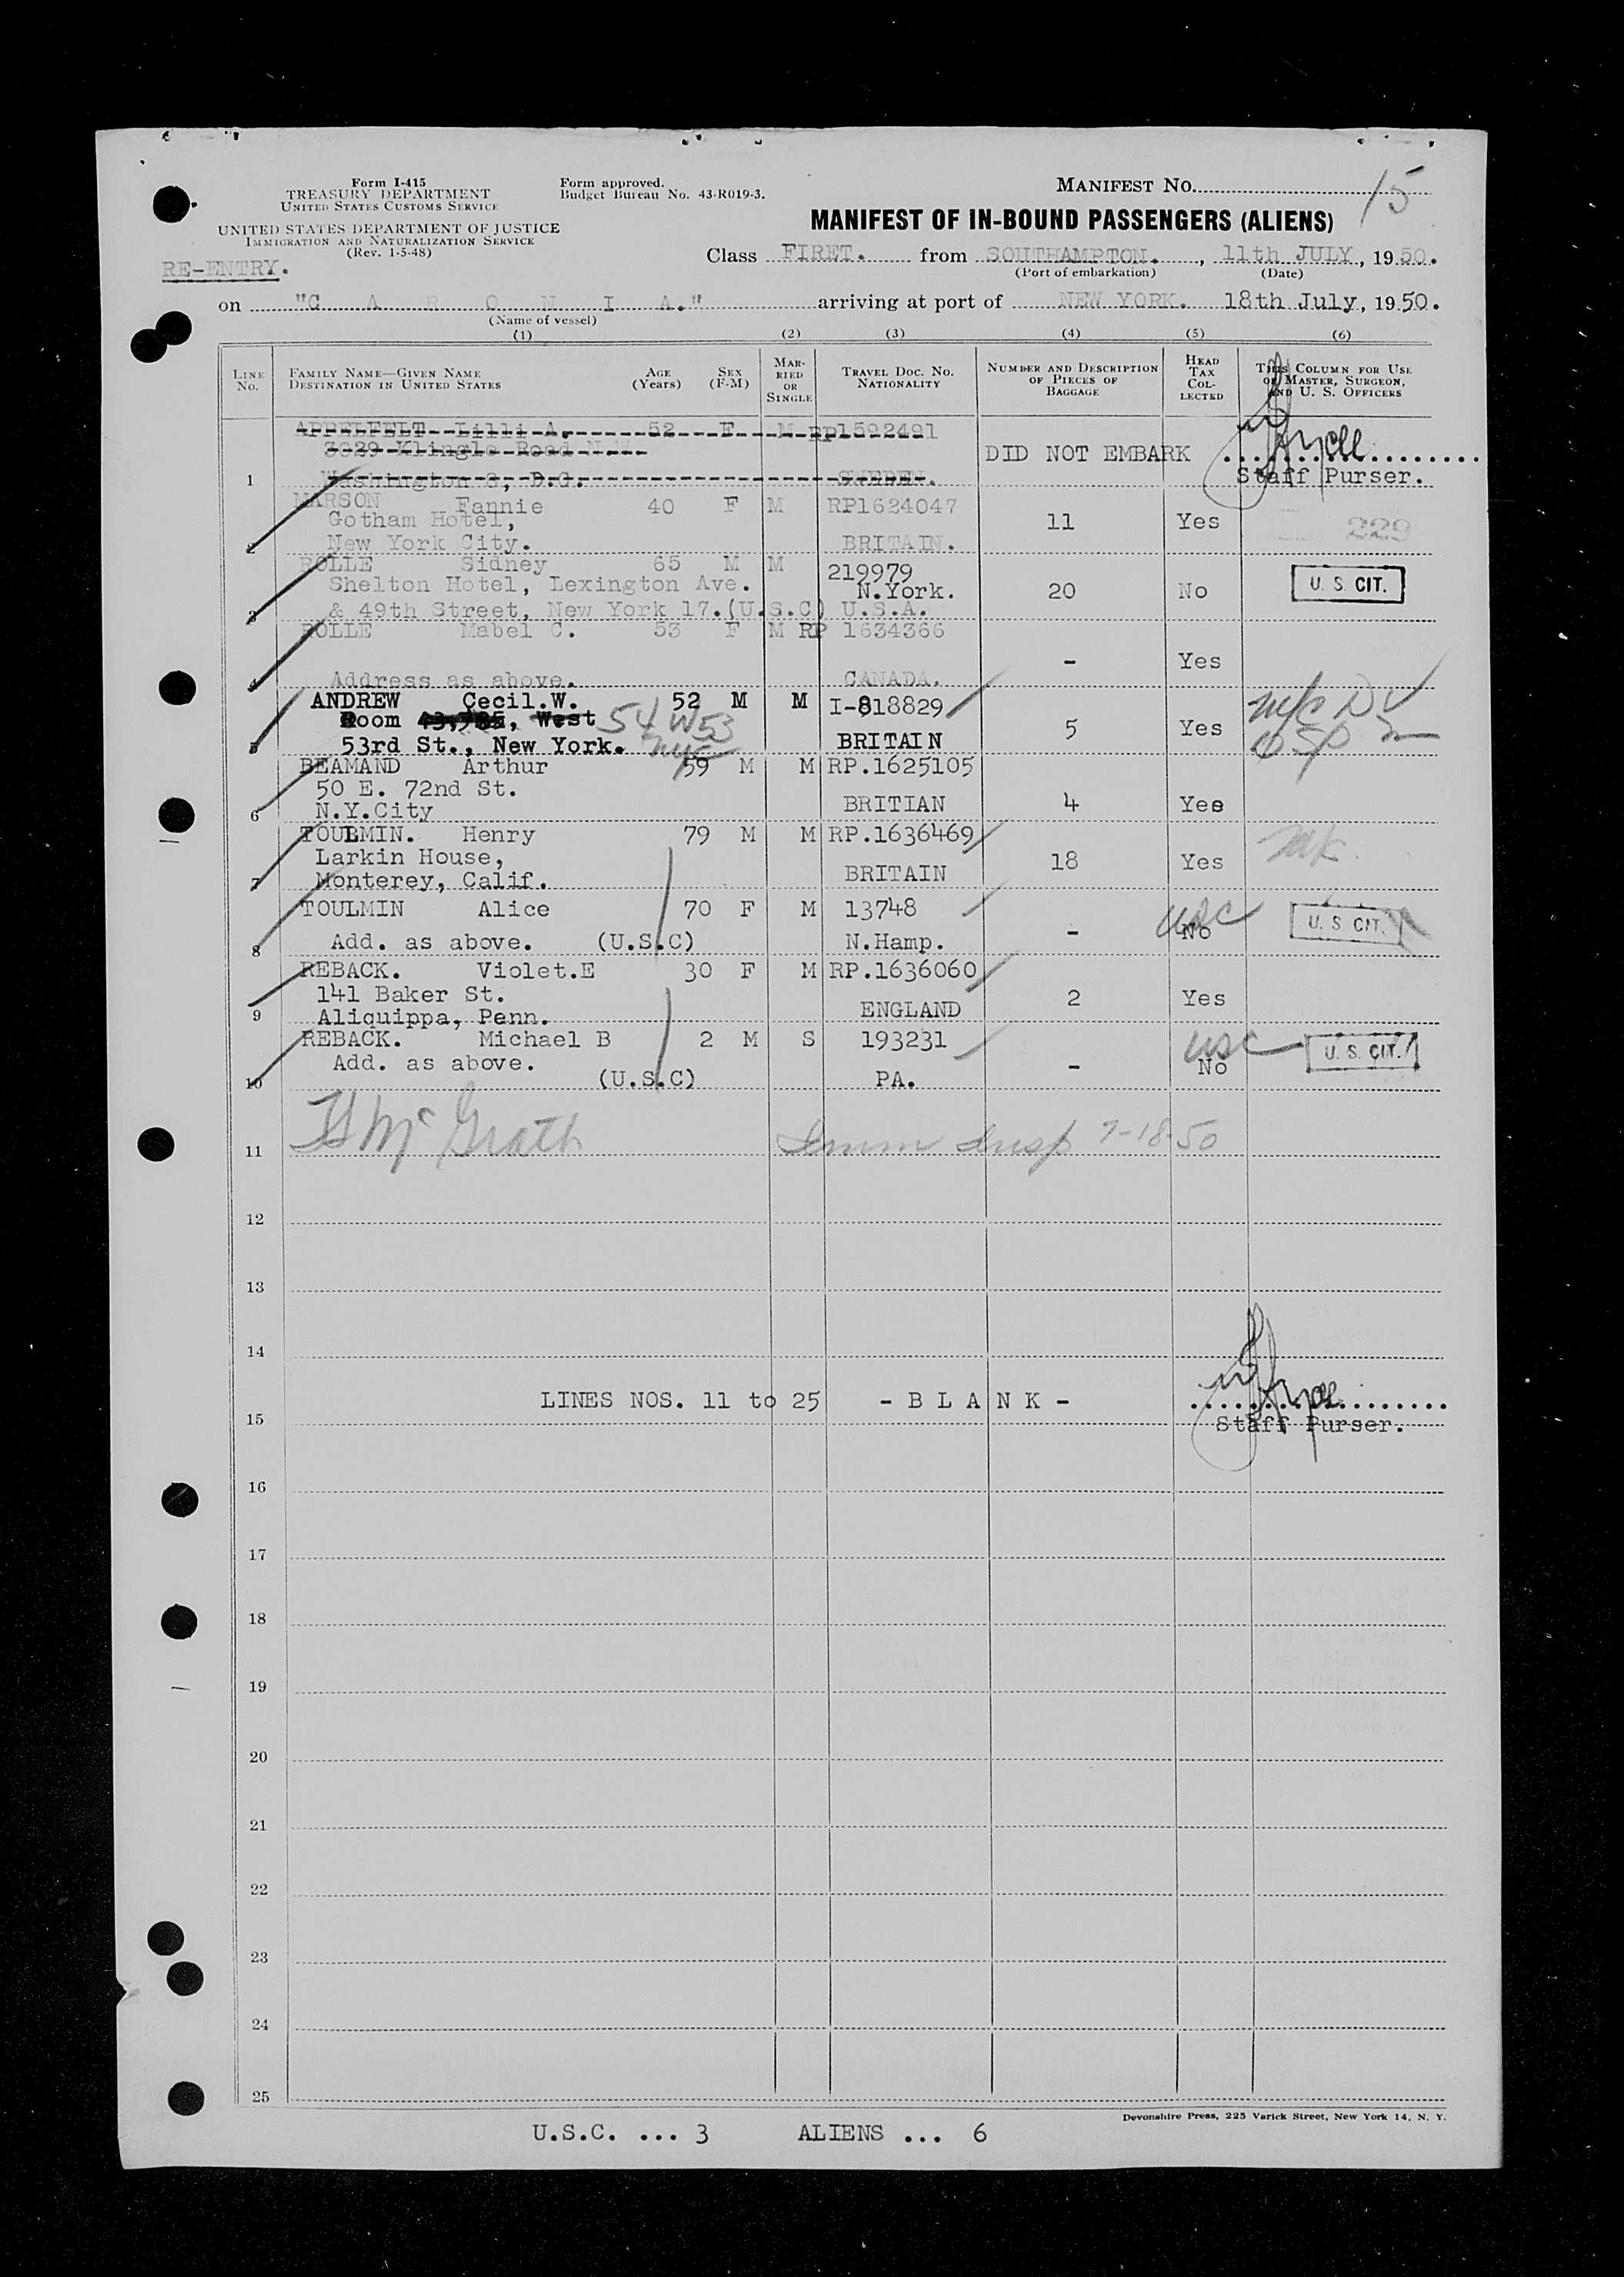 Form I-415
TREASURY DEPARTMENT
UNITED STATES CUSTOMS SERVICE
UNITED STATES DEPARTMENT OF JUSTICE
IMMIGRATION AND NATURALIZATION SERVICE
(Rev. 1-5-48)
RE-ENTRY.
Form approved.
Budget Bureau No. 43-R019-3.
MANIFEST NO. 15
MANIFEST OF IN-BOUND PASSENGERS (ALIENS)
Class FIRET. from SOUTHAMPTON. , 11th JULY , 1950.
(Port of embarkation) (Date)
on "C A R O N I A." arriving at port of NEW YORK. 18th July, 1950.
(Name of vessel)
(1) (2) (3) (4) (5) (6)
LINE No. FAMILY NAME—GIVEN NAME DESTINATION IN UNITED STATES AGE (Years) SEX (F-M) MARRIED OR SINGLE TRAVEL DOC. NO. NATIONALITY NUMBER AND DESCRIPTION OF PIECES OF BAGGAGE HEAD TAX COLLECTED THIS COLUMN FOR USE OF MASTER, SURGEON, AND U. S. OFFICERS
APPELFELT Lilli A. 52 F M RP1592491
3029 Klingle Road N.W. DID NOT EMBARK
1 Washington 8, D.C. SWEDEN. Staff Purser.
MARSON Fannie 40 F M RP1624047
Gotham Hotel, 11 Yes 229
2 New York City. BRITAIN.
ROLLE Sidney 65 M M 219979
Shelton Hotel, Lexington Ave. N.York. 20 No U. S. CIT.
3 & 49th Street, New York 17.(U.S.C) U.S.A.
ROLLE Mabel C. 53 F M RP 1634366
- Yes
4 Address as above. CANADA.
ANDREW Cecil.W. 52 M M I-818829
Room , West 54 W 53 5 Yes
5 53rd St., New York. NYC BRITAIN
BEAMAND Arthur 59 M M RP.1625105
50 E. 72nd St. BRITIAN 4 Yes
6 N.Y.City
TOULMIN. Henry 79 M M RP.1636469
Larkin House, 18 Yes
7 Monterey, Calif. BRITAIN
TOULMIN Alice 70 F M 13748 USC U. S. CIT.
8 Add. as above. (U.S.C) N.Hamp. - No
REBACK. Violet.E 30 F M RP.1636060
141 Baker St. 2 Yes
9 Aliquippa, Penn. ENGLAND
REBACK. Michael B 2 M S 193231 USC U. S. CIT.
Add. as above. - No
10 (U.S.C) PA.
11 McGrath Imm Insp 7-18-50
12
13
14
LINES NOS. 11 to 25 - B L A N K -
15 Staff Purser.
16
17
18
19
20
21
22
23
24
25
Devonshire Press, 225 Varick Street, New York 14, N. Y.
U.S.C. ... 3 ALIENS ... 6